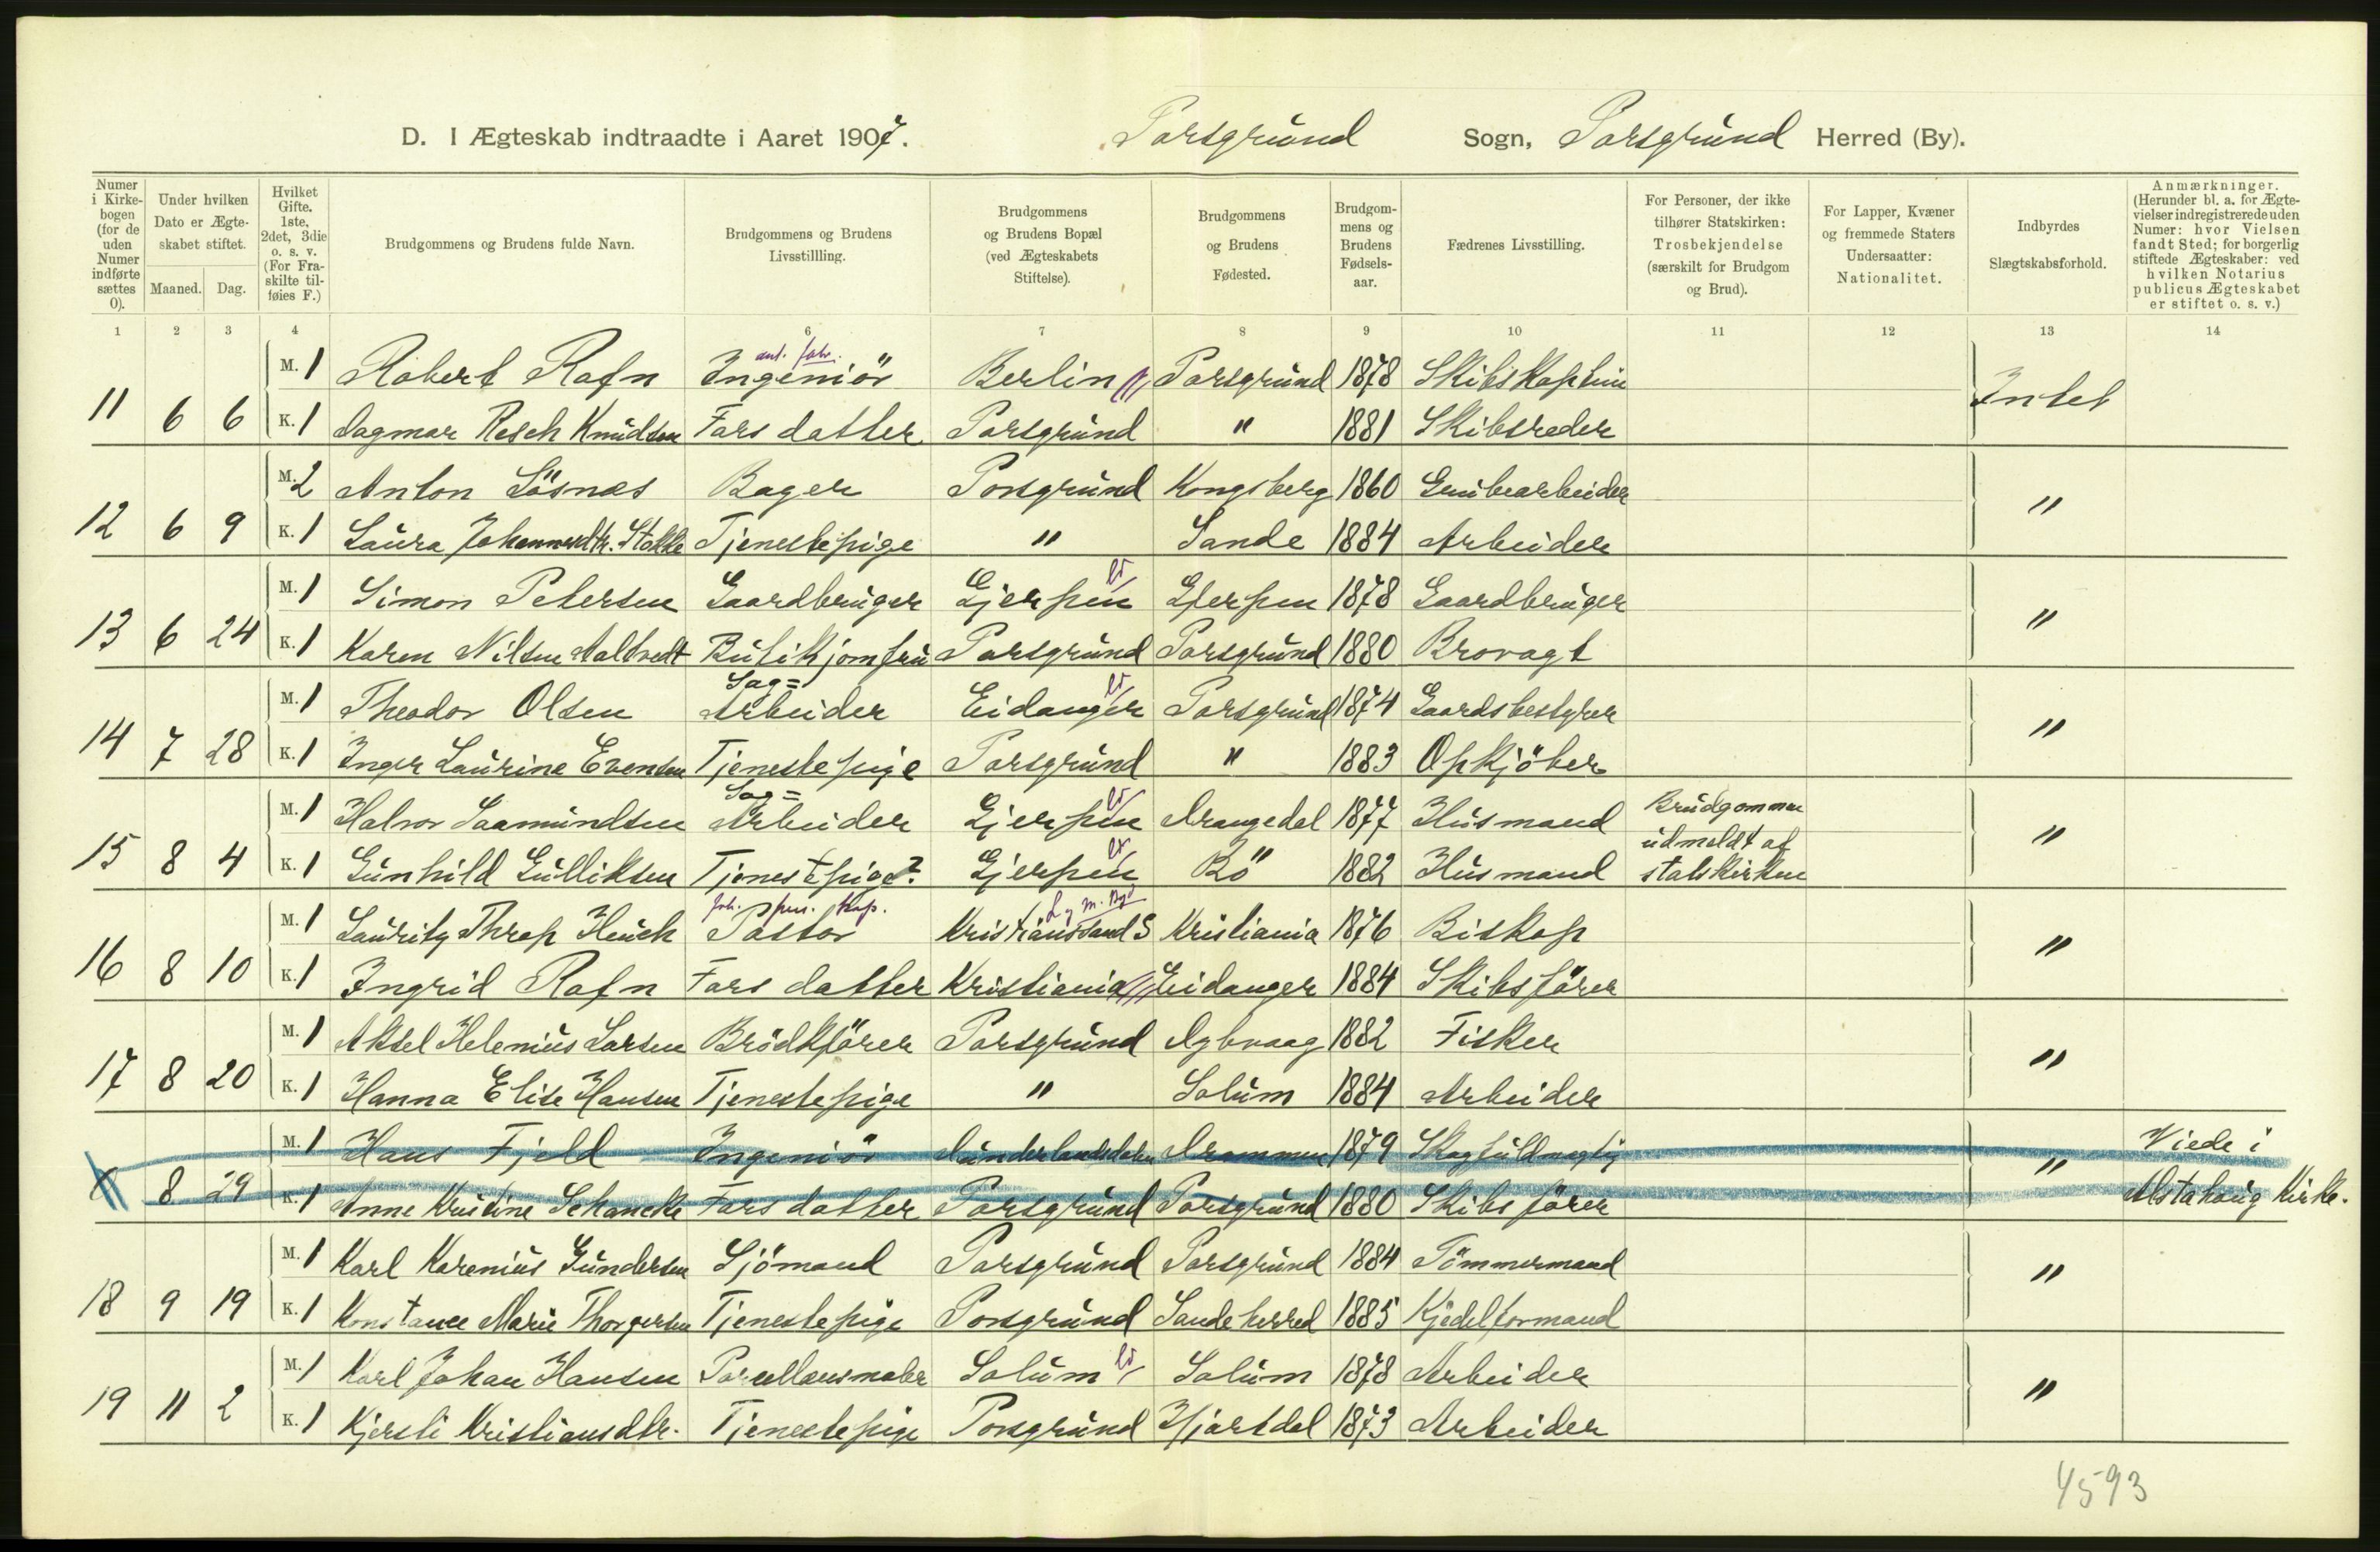 D. I Ægteskab indtraadte i Aaret 1907. Porsgrund Sogn, Porsgrund Herred (By).
Numer i Kirkebogen (for de uden Numer indførte sættes 0).
Under hvilken Dato er Ægteskabet stiftet.
Maaned. Dag.
Hvilket Gifte. 1ste, 2det, 3die o. s. v. (For Fraskilte tilføies F.)
Brudgommens og Brudens fulde Navn.
Brudgommens og Brudens Livsstillling.
Brudgommens og Brudens Bopæl (ved Ægteskabets Stiftelse).
Brudgommens og Brudens Fødested.
Brudgommens og Brudens Fødselsaar.
Fædrenes Livsstilling.
For Personer, der ikke tilhører Statskirken: Trosbekjendelse (særskilt for Brudgom og Brud).
For Lapper, Kvæner og fremmede Staters Undersaatter: Nationalitet.
Indbyrdes Slægtskabsforhold.
Anmærkninger. (Herunder bl. a. for Ægtevielser indregistrerede uden Numer: hvor Vielsen fandt Sted; for borgerlig stiftede Ægteskaber: ved hvilken Notarius publicus Ægteskabet er stiftet o. s. v.)
1 2 3 4 6 7 8 9 10 11 12 13 14
M. 1 Robert Rafn Ingeniör Berlin Porsgrund 1878 Skibskaptein
11 6 6 Intet
K. 1 Dagmar Resch Knudsen Fars datter Porsgrund " 1881 Skibsreder
M. 2 Anton Lösnæs Bager Porsgrund Kongsberg 1860 Grubearbeider
12 6 9 "
K. 1 Laura Johannesdtr. Stokke Tjenestepige " Sande 1884 Arbeider
M. 1 Simon Petersen Gaardbruger Gjerpen Gjerpen 1878 Gaardbruger
13 6 24 "
K. 1 Karen Nilsen Aaltvedt Butikjomfru Porsgrund Porsgrund 1880 Brovagt
Sag=
M. 1 Theodor Olsen Arbeider Eidanger Porsgrund 1874 Gaardsbestyrer
14 7 28 "
K. 1 Inger Laurine Evensen Tjenestepige Porsgrund " 1883 Opkjöber
Sag=
M. 1 Halvor Saamundsen Arbeider Gjerpen Drangedal 1877 Husmand Brudgommen
15 8 4 udmeldt af "
K. 1 Gunhild Gulliksen Tjenestepige? Gjerpen Bö 1882 Husmand statskirken
M. 1 Lauritz Throp Heuch Pastor Kristiansand S Kristiania 1876 Biskop
16 8 10 "
K. 1 Ingrid Rafn Fars datter Kristiania Eidanger 1884 Skibsförer
M. 1 Aksel Helenius Larsen Brödkjörer Porsgrund Dybvaag 1882 Fisker
17 8 20 "
K. 1 Hanna Elise Hansen Tjenestepige " Solum 1884 Arbeider
M. 1 Hans Fjeld Ingeniör Dunderlandsdalen Drammen 1879 Skogfuldmægtig Viede i
8 29 "
K. 1 Anne Kristine Schancke Fars datter Porsgrund Porsgrund 1880 Skibsförer Alstahaug Kirke.
M. 1 Karl Karenius Gundersen Sjömand Porsgrund Porsgrund 1884 Tömmermand
18 9 19 "
K. 1 Konstance Marie Thorgersen Tjenestepige Porsgrund Sandeherred 1885 Kjedelformand
M. 1 Karl Johan Hansen Porcellænsmaler Solum Solum 1878 Arbeider
19 11 2 "
K. 1 Kjersti Kristiansdtr. Tjenestepige Porsgrund Hjartdal 1873 Arbeider
4593